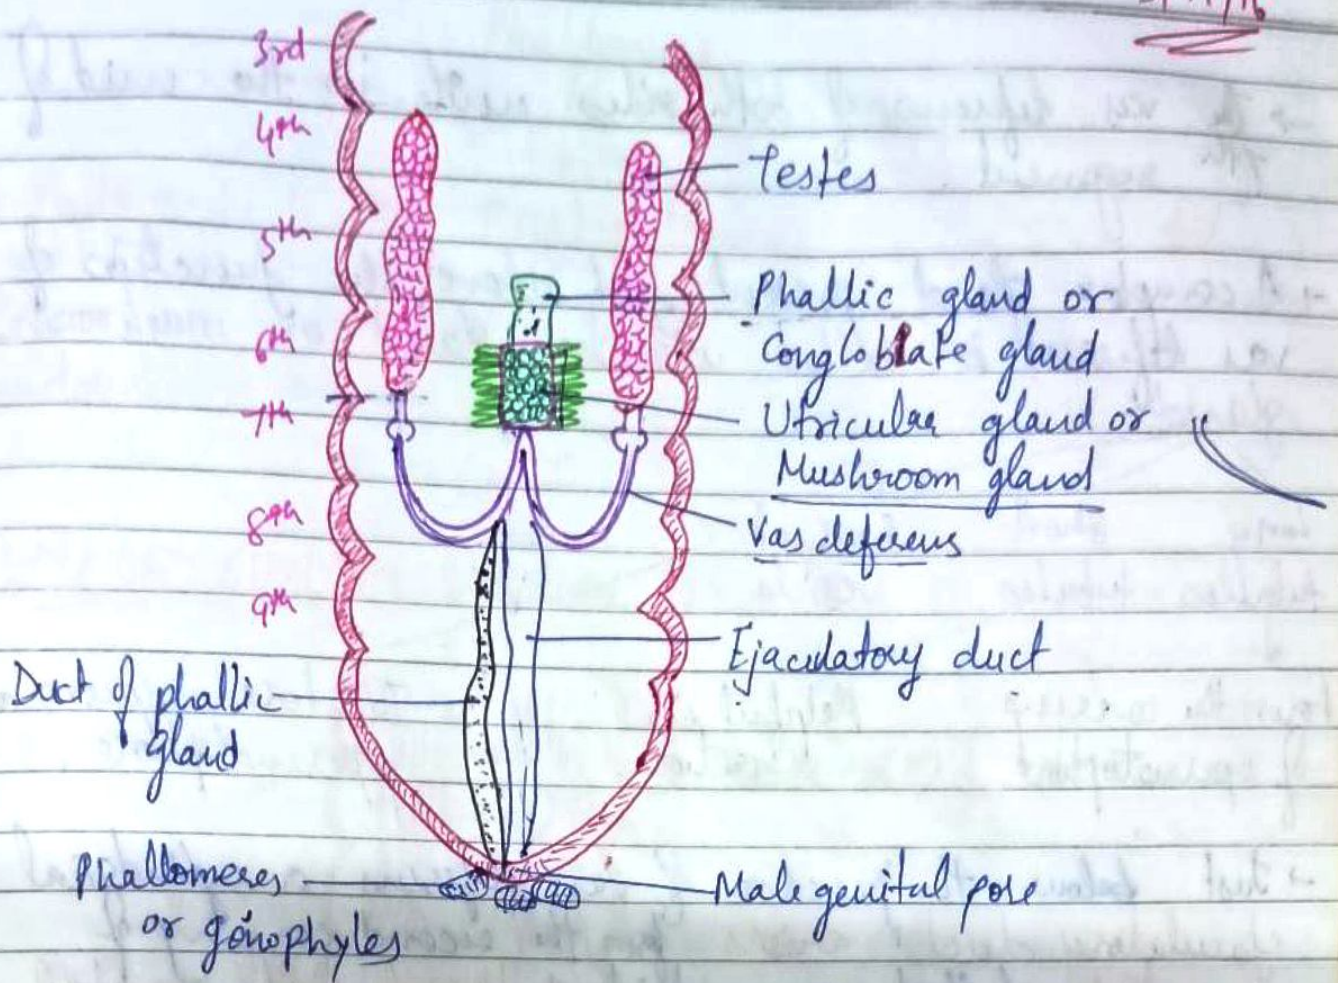 3rd
4th
5th
6th
7th
8th
9th
Testes
Phallic gland or
Congloblate gland
Utricular gland or
Mushroom gland
Vas deferens
Ejaculatory duct
Duct of phallic
gland
Phallomeres
or gonophyles
Male genital pore